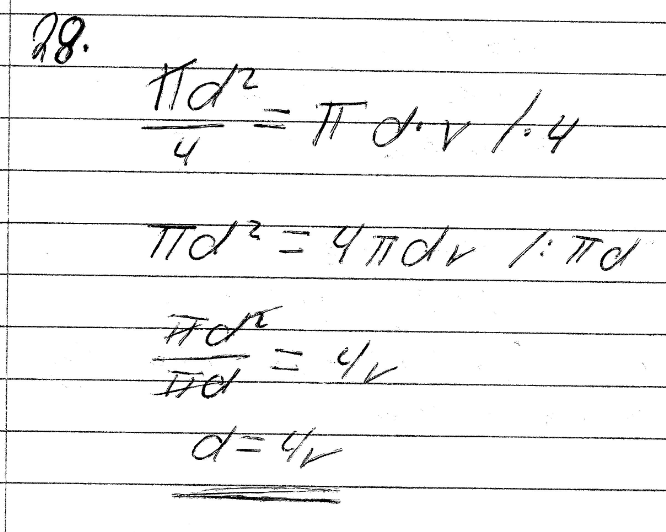 28.
πd²/4 = π d·v /·4
πd² = 4πdv /:πd
πd²/πd = 4v
d = 4v